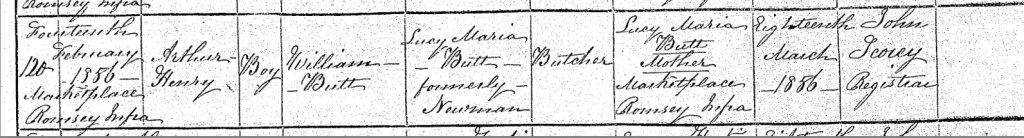 Romsey Infra
Fourteenth
February
120 -1886-
Marketplace
Romsey Infra
Arthur
Henry
Boy
William
- Butt
Lucy Maria
- Butt -
formerly
Newman
Butcher
Lucy Maria
Butt
Mother
Marketplace
Romsey Infra
Eighteenth
March
-1886-
John
Scorey
Registrar